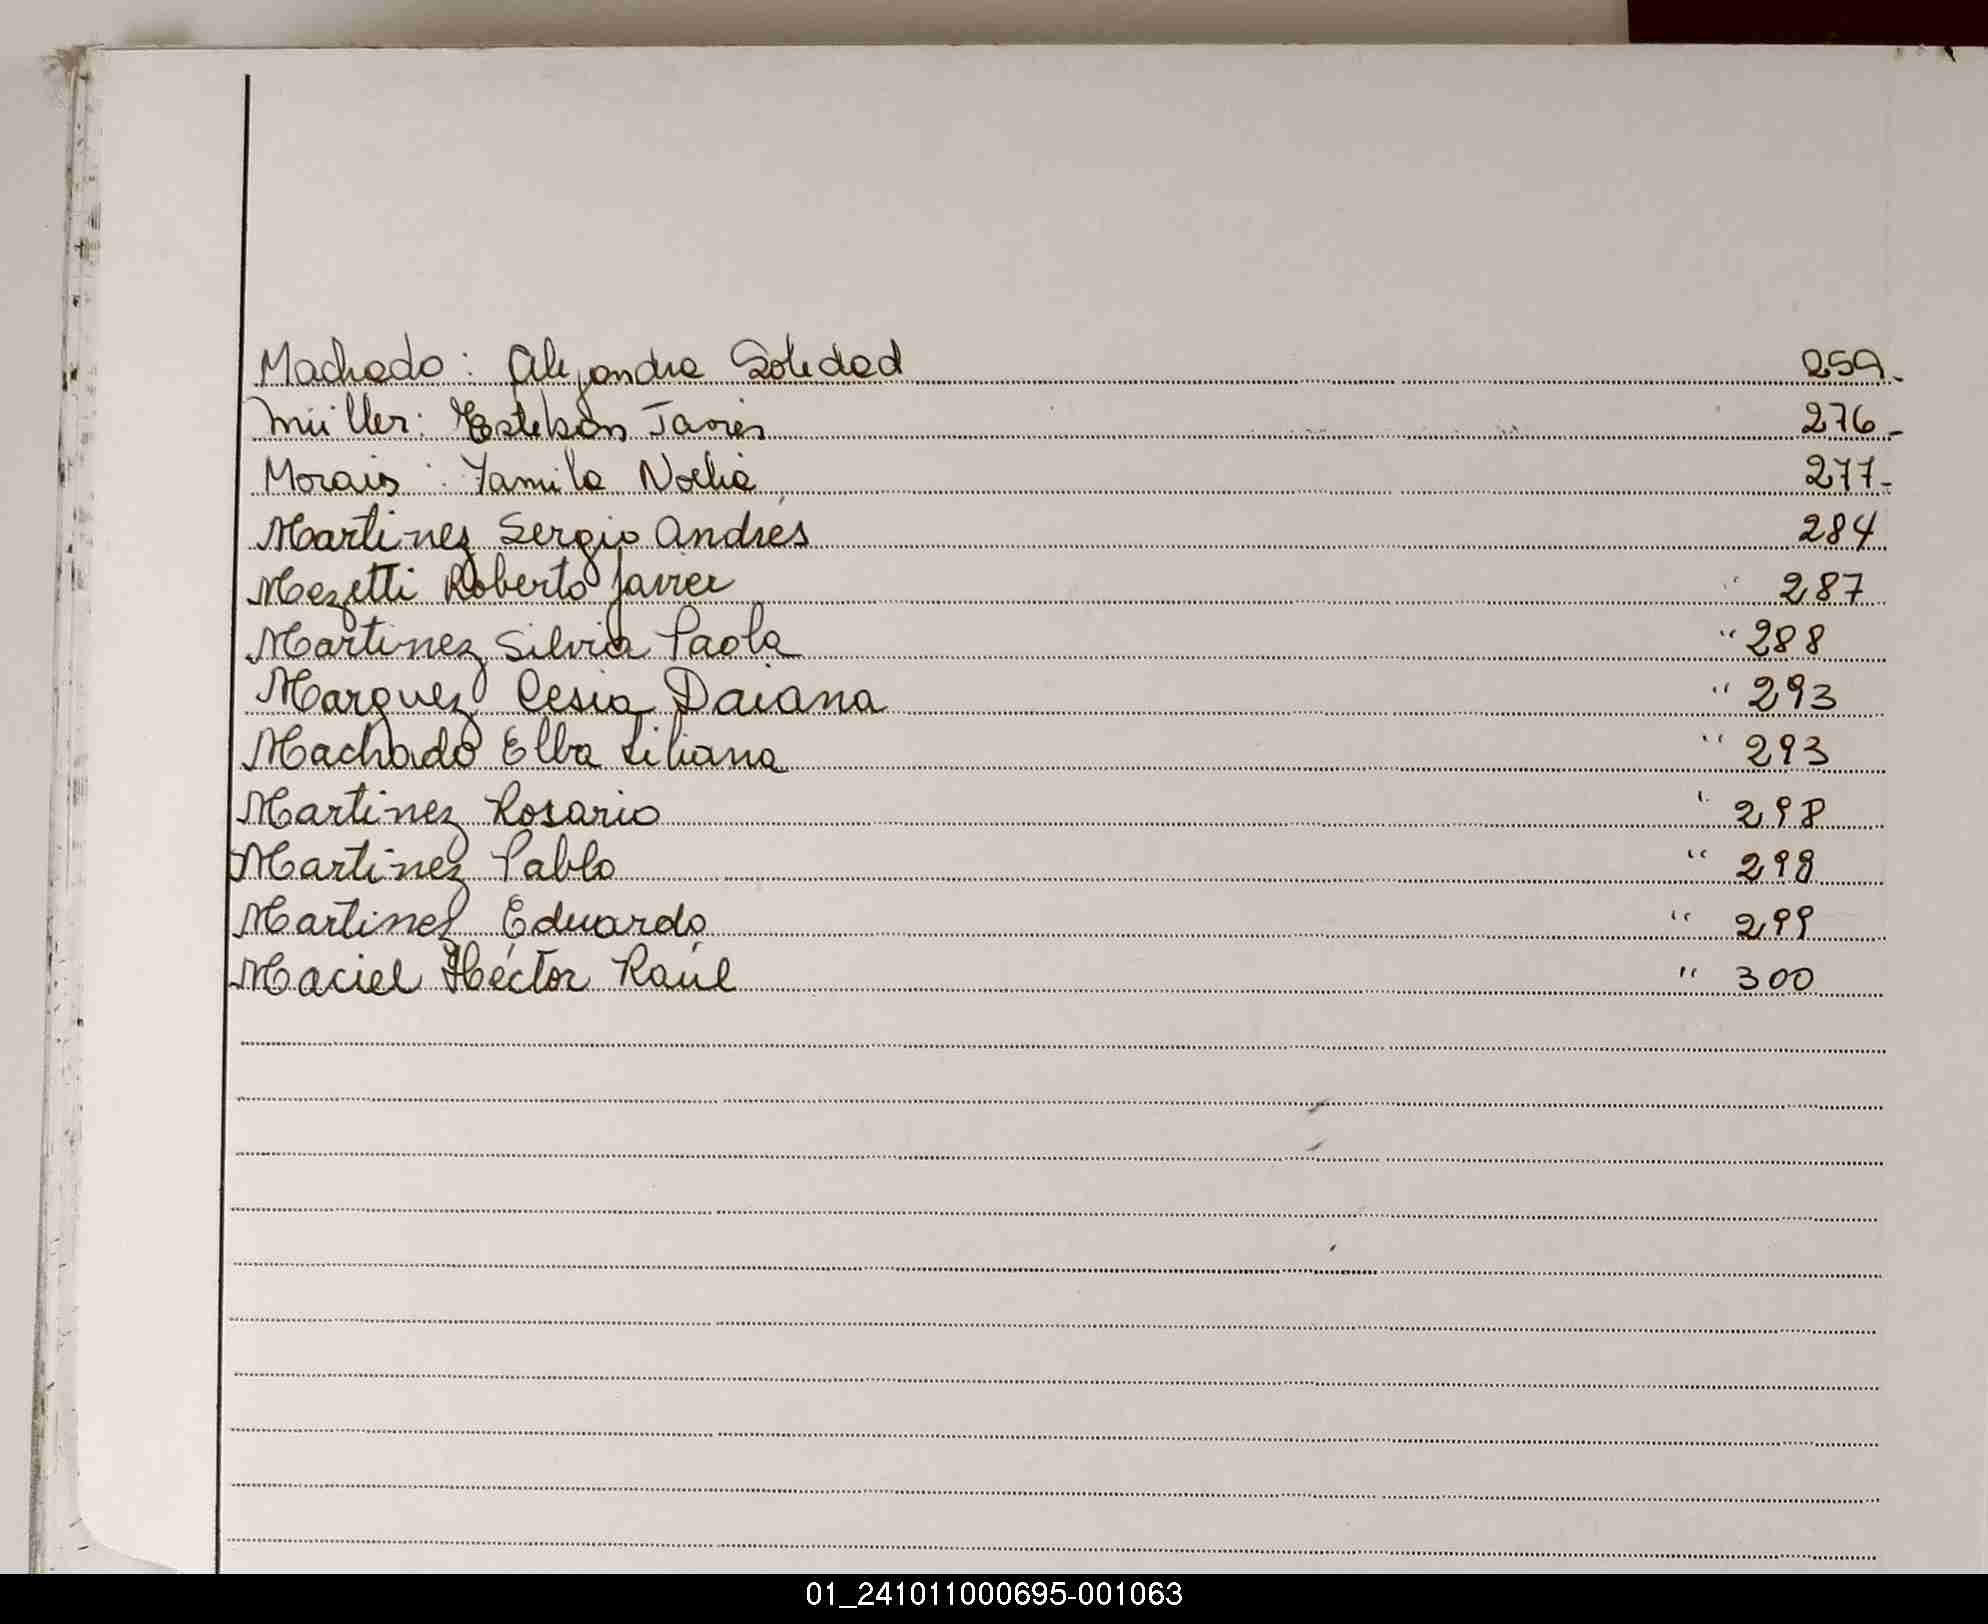 Machado: Alejandra Soledad 259.
Müller: Esteban Javier 276-
Morais: Yamila Noelia 277-
Martinez Sergio Andrés 284
Mezetti Roberto Javier " 287
Martinez Silvia Paola " 288
Marquez Cesia Daiana " 293
Machado Elba Liliana " 293
Martinez Rosario " 298
Martinez Pablo " 298
Martinez Eduardo " 299
Maciel Héctor Raúl " 300
01_241011000695-001063